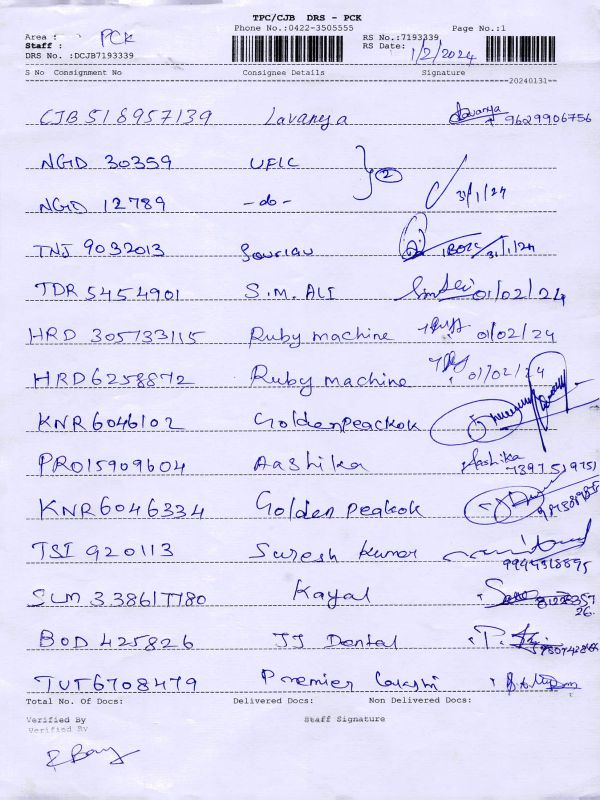 TPC/CJB DRS - PCK
Phone No.:0422-3505555 Page No.:1
Area : PCK RS No.:7193339
Staff : RS Date: 1/2/2024
DRS No. :DCJB7193339
S No Consignment No Consignee Details Signature
20240131
CJB518957139 Lavanya Lavanya 9629906756
NGD 30359 UFIC 2
NGD 12789 -do- 31/1/24
TNJ 9032013 Souriau 31/1/24
TDR 5454901 S.M. ALI 01/02/24
HRD 305733115 Ruby machine 01/02/24
HRD6258872 Ruby machine 01/02/24
KNR6046102 Goldenpeackok
PRO15909604 Aashika Aashika
KNR6046334 Golden peakok
TSI 920113 Suresh kumar
SLM 338617780 Kayal
BOD 425826 JJ Dental
TUT6708479 Premier
Total No. Of Docs: Delivered Docs: Non Delivered Docs:
Verified By Staff Signature
Verified By